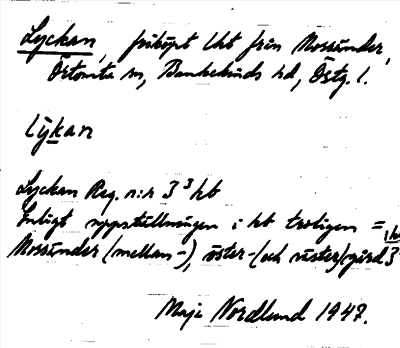 Lyckan, friköpt lht från Mossunder,
Örtomta sn, Bankekinds hd, Östg. l.
lykan
Lyckan Reg. n:r 3³ kb
Enligt uppställningen i kb troligen =
Mossunder (mellan-), öster- (och väster)gård 3
Maja Nordlund 1947.